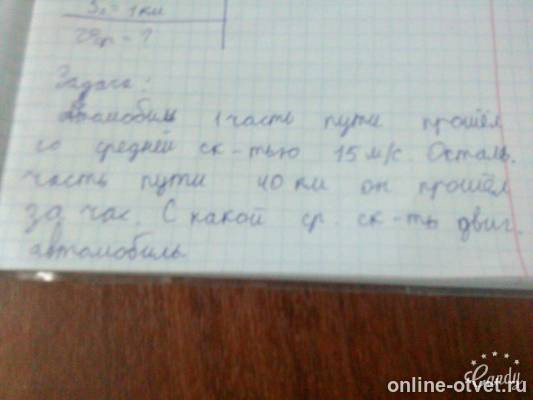 S₂ = 1 км
Vср - ?
Задача:
Автомобиль 1 часть пути прошёл
со средней ск-тью 15 м/с. Осталь.
часть пути 40 км он прошёл
за час. С какой ср. ск-ть двиг.
автомобиль
Candy
online-otvet.ru